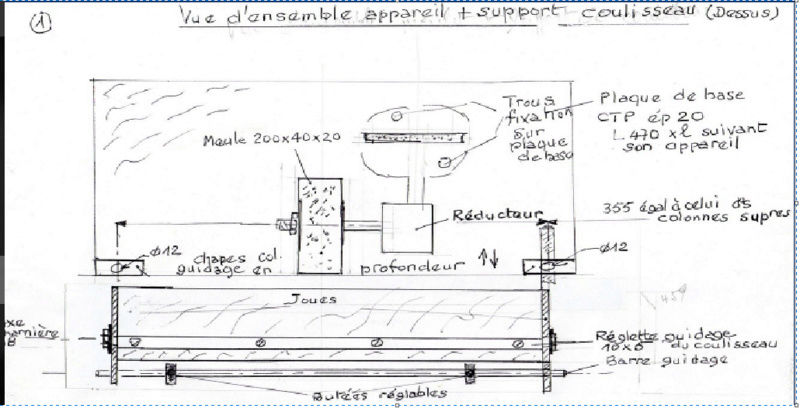 1
Vue d'ensemble appareil + support coulisseau (Dessus)
Trous
fixation
sur
plaque
de base
Plaque de base
CTP ép 20
L 470 x l suivant
son appareil
Meule 200x40x20
Réducteur
355 égal à celui des
colonnes supres
Ø12
chapes col.
guidage en
profondeur
Ø12
45°
Joues
xe
8
Réglette guidage
10x6 du coulisseau
Barre guidage
Butées réglables